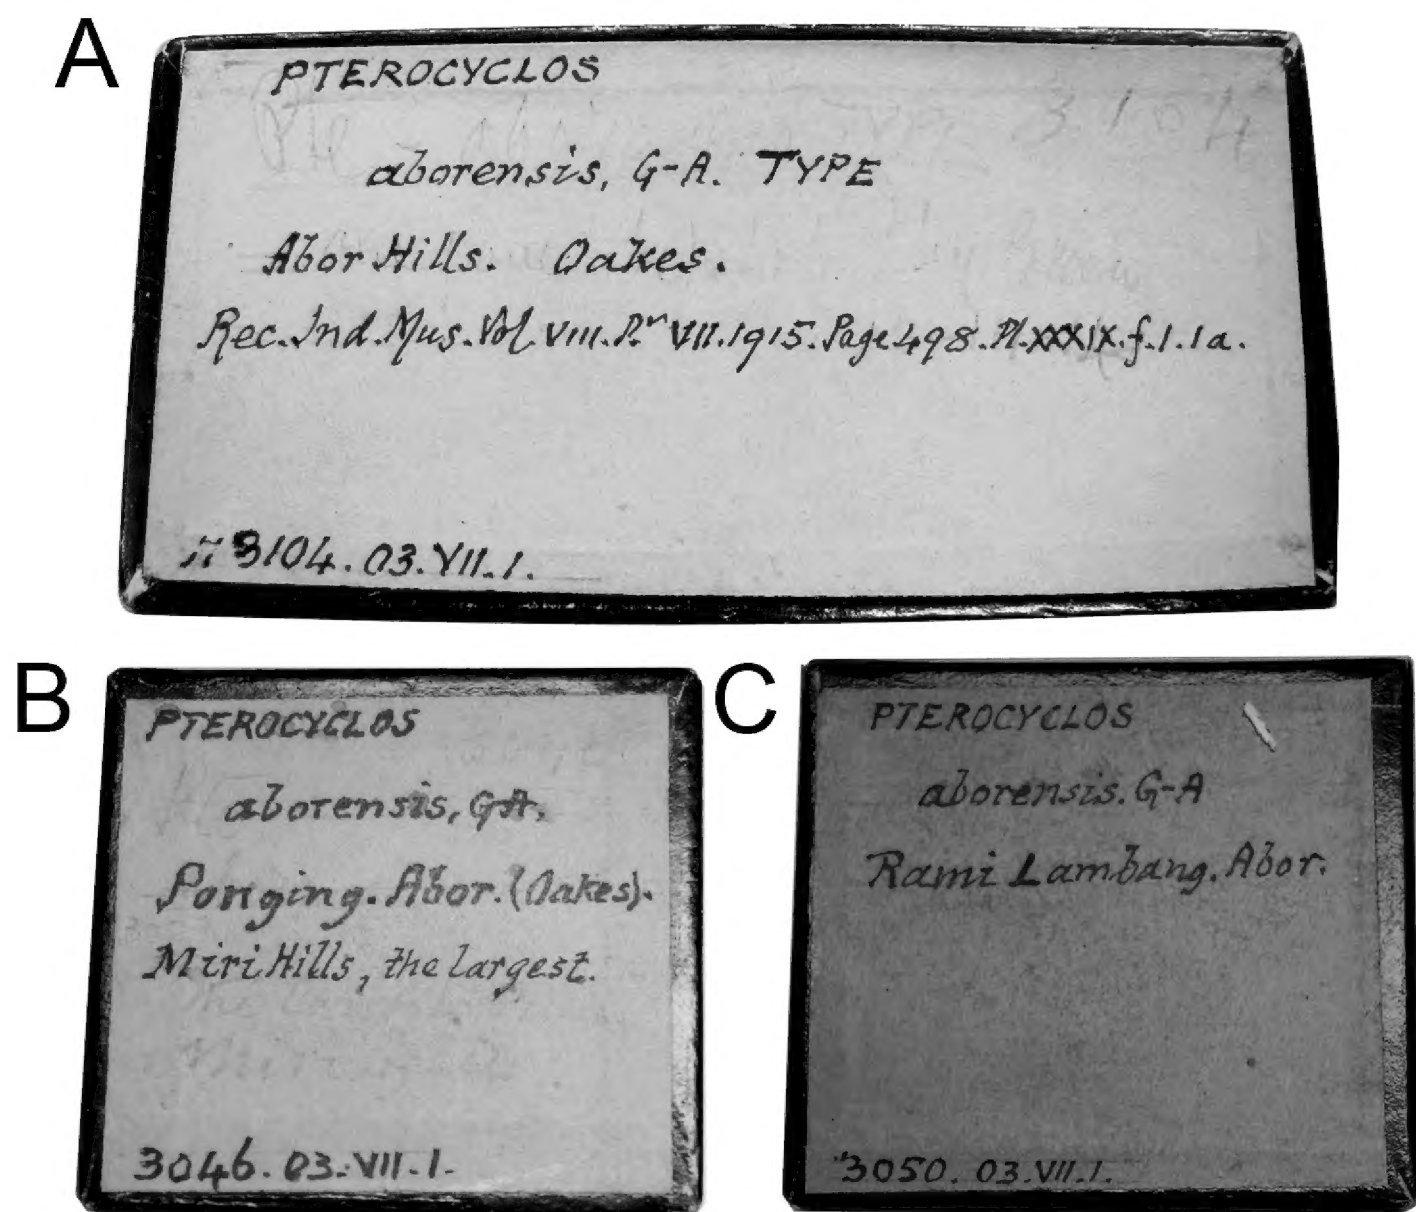 A
PTEROCYCLOS
3104
aborensis, G-A. TYPE
Abor Hills. Oakes.
Rec. Ind. Mus. Vol. VIII. Pt VII. 1915. Page 498. Pl. XXXIX. f. 1. 1a.
3104. 03. VII. 1.
B
PTEROCYCLOS
aborensis, G-A.
Ponging. Abor. (Oakes).
Miri Hills, the largest.
3046. 03. VII. 1.
C
PTEROCYCLOS
aborensis. G-A
Rami Lambang. Abor.
3050. 03. VII. 1.